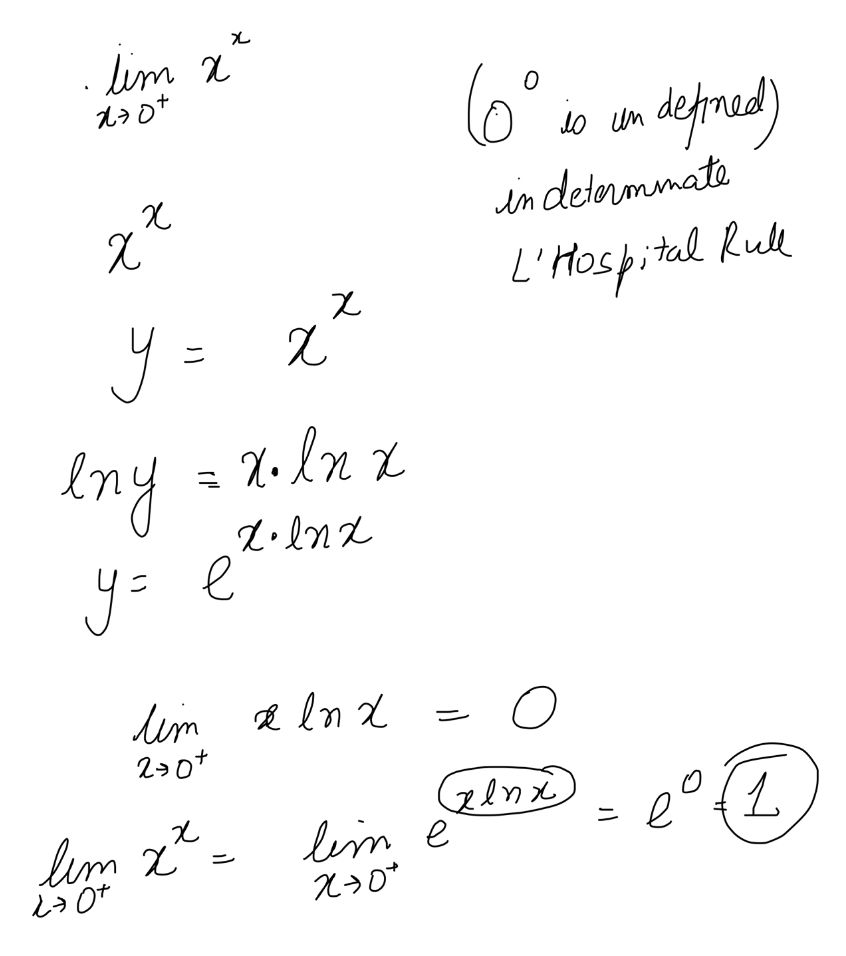 lim x^x
x→0⁺
(0^0 is undefined)
indeterminate
L'Hospital Rule
x^x
y = x^x
ln y = x · ln x
y = e^{x · ln x}
lim x ln x = 0
x→0⁺
lim x^x = lim e^{x ln x} = e^0 = 1
x→0⁺ x→0⁺